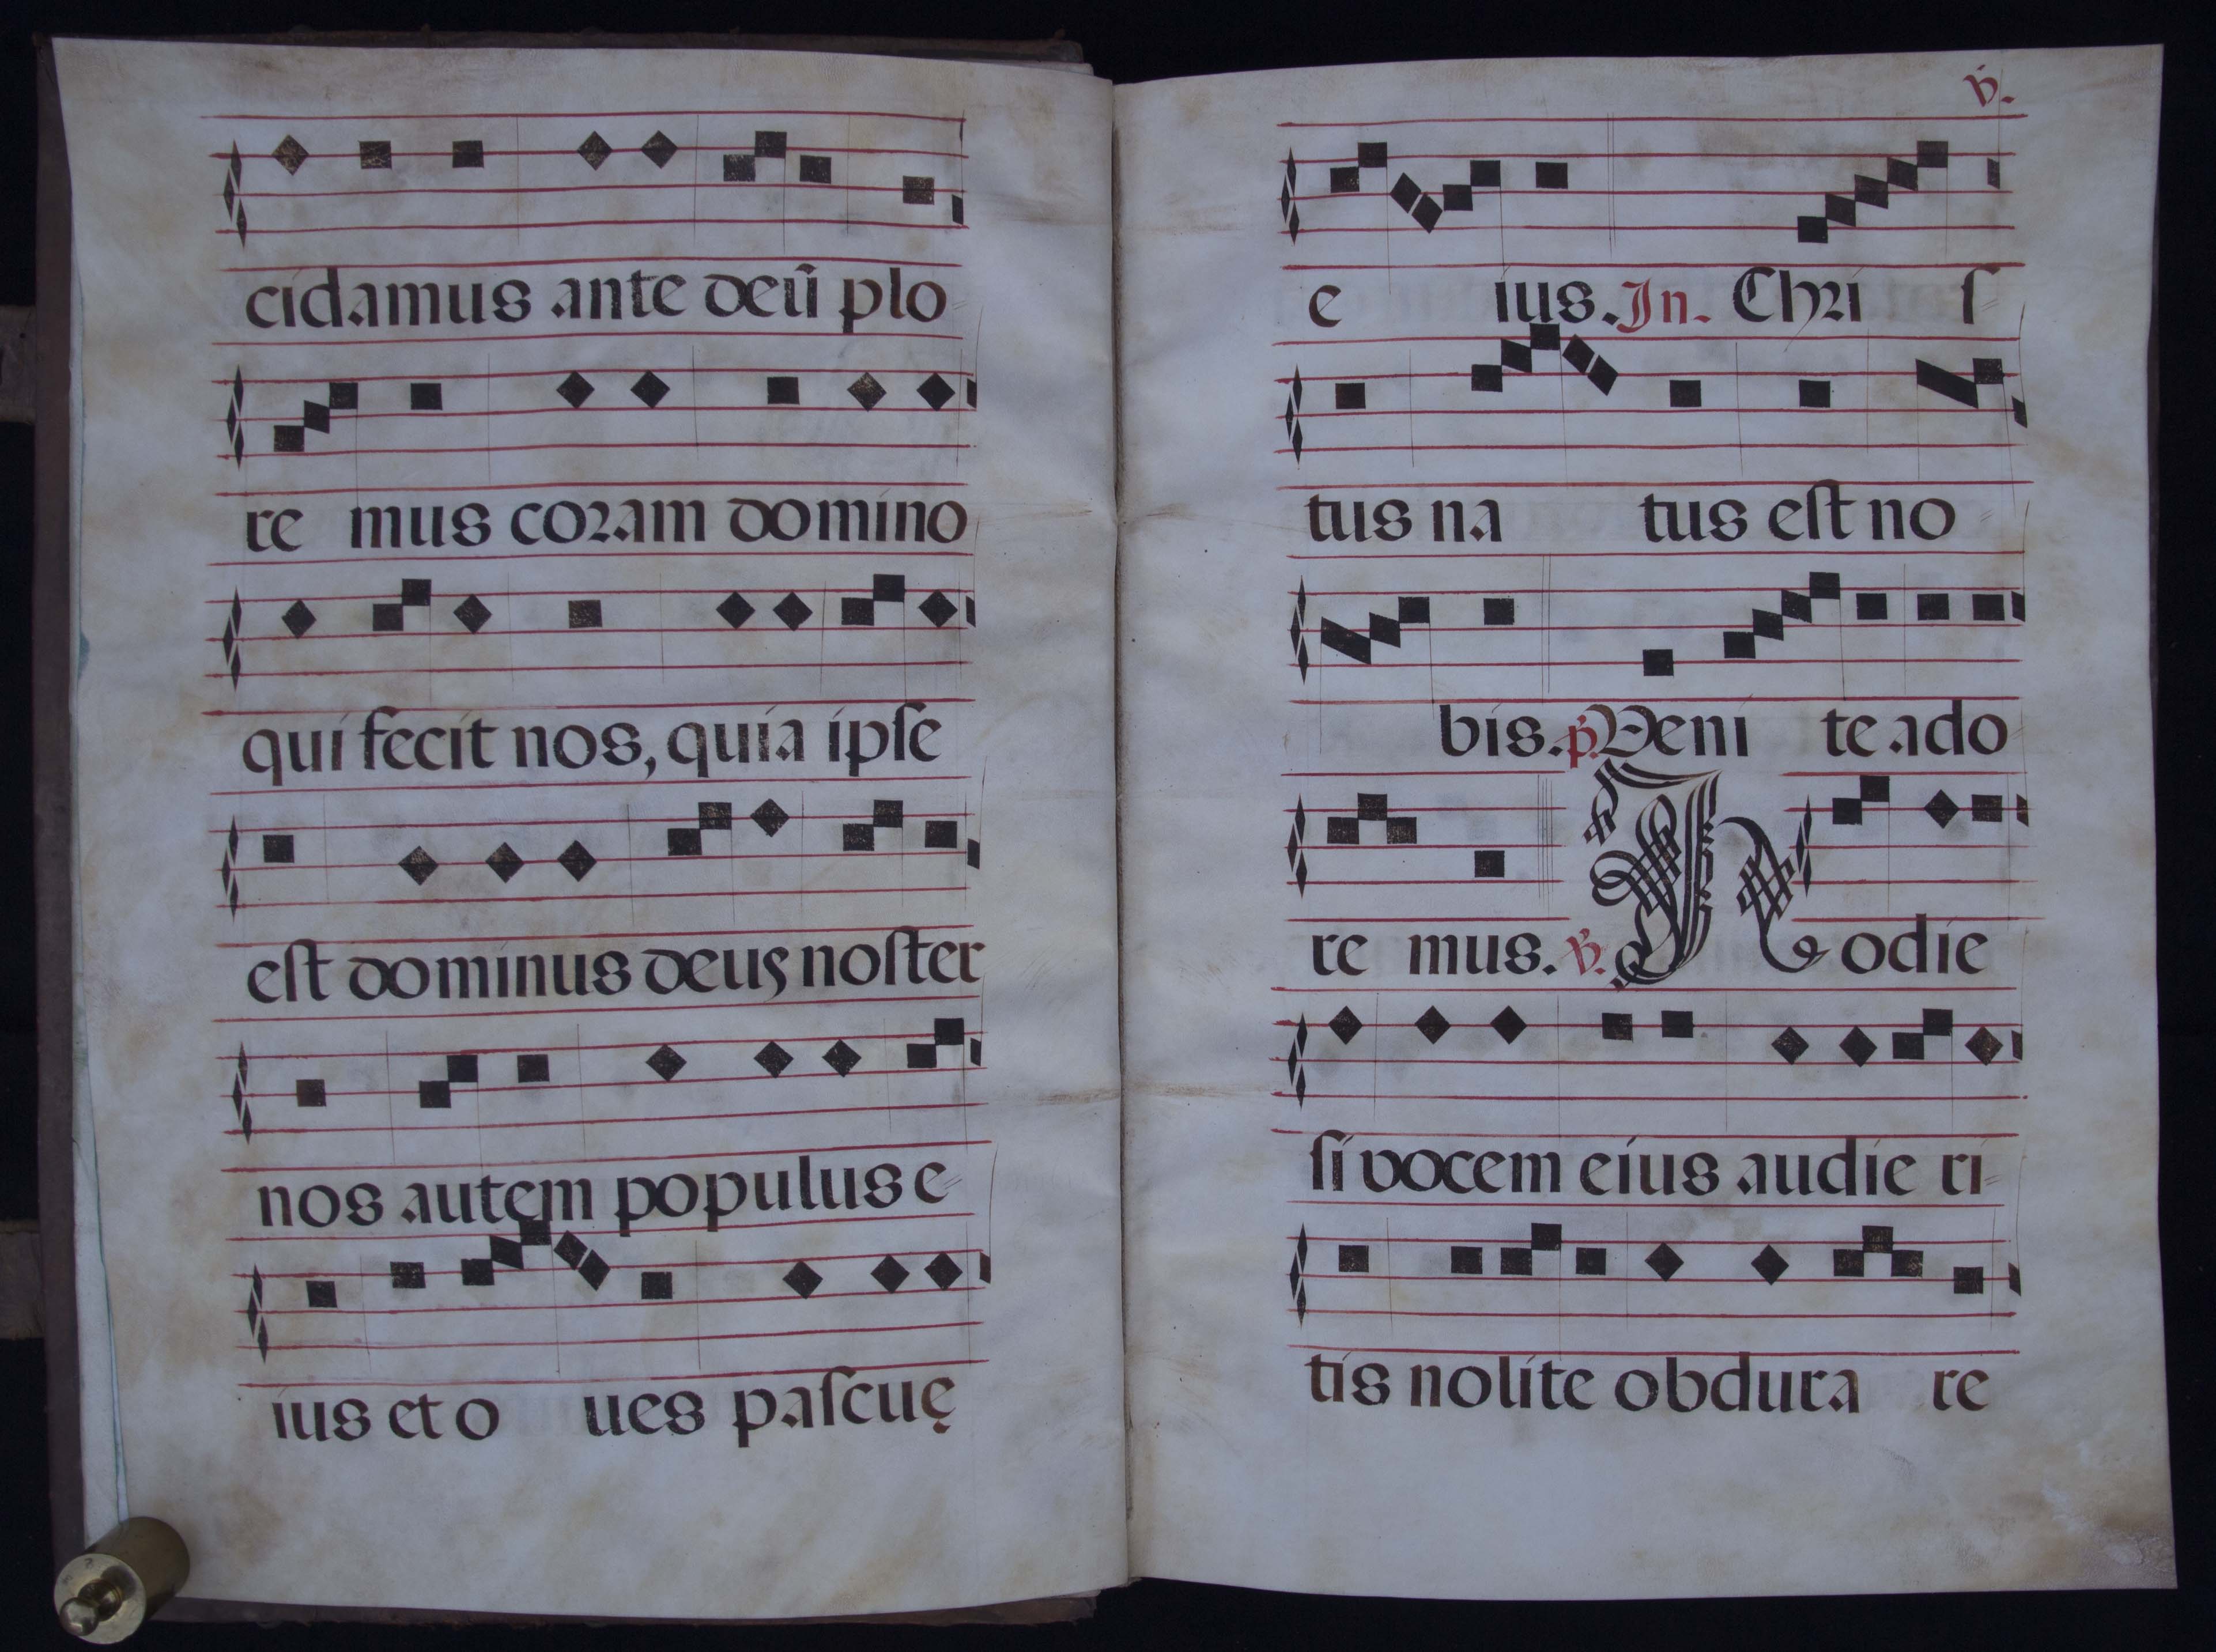 cidamus ante deũ plo=
re mus coram domino
qui fecit nos, quia ipſe
eſt dominus deus noſter
nos autem populus e=
ius et o ues paſcuę
v.
e ius. In. Chri ſ=
tus na tus eſt no=
bis. p. Veni te ado
re mus. v. Hodie
ſi vocem eius audie ri=
tis nolite obdura re